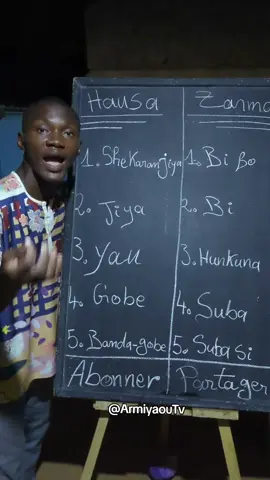 Hausa
1. Shekaranjiya
2. Jiya
3. Yau
4. Gobe
5. Banda-gobe
Abonner
Zarma
1. Bi Bo
2. Bi
3. Hunkuna
4. Suba
5. Suba si
Partager
@ArmiyaouTv